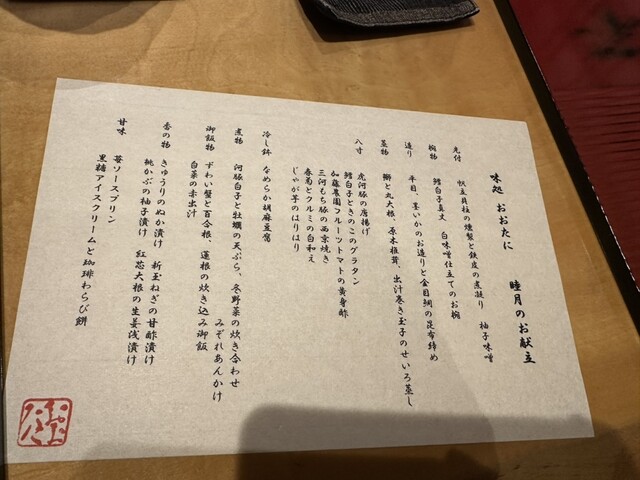 味処 おおたに 睦月のお献立
先付 帆立貝柱の燻製と鉄皮の煮凝り 柚子味噌
椀物 鱈白子真丈 白味噌仕立てのお椀
造り 平目、墨いかのお造りと金目鯛の昆布締め
蒸物 鰤と丸大根、原木椎茸、出汁巻き玉子のせいろ蒸し
八寸 虎河豚の唐揚げ
鱈白子ときのこのグラタン
加藤農園フルーツトマトの黄身酢
三河もち豚の西京焼き
春菊とクルミの白和え
じゃが芋のはりはり
冷し鉢 なめらか胡麻豆腐
煮物 河豚白子と牡蠣の天ぷら、冬野菜の炊き合わせ
みぞれあんかけ
御飯物 ずわい蟹と百合根、蓮根の炊き込み御飯
白菜の赤出汁
香の物 きゅうりのぬか漬け 新玉ねぎの甘酢漬け
桃かぶの柚子漬け 紅芯大根の生姜浅漬け
甘味 苺ソースプリン
黒糖アイスクリームと珈琲わらび餅